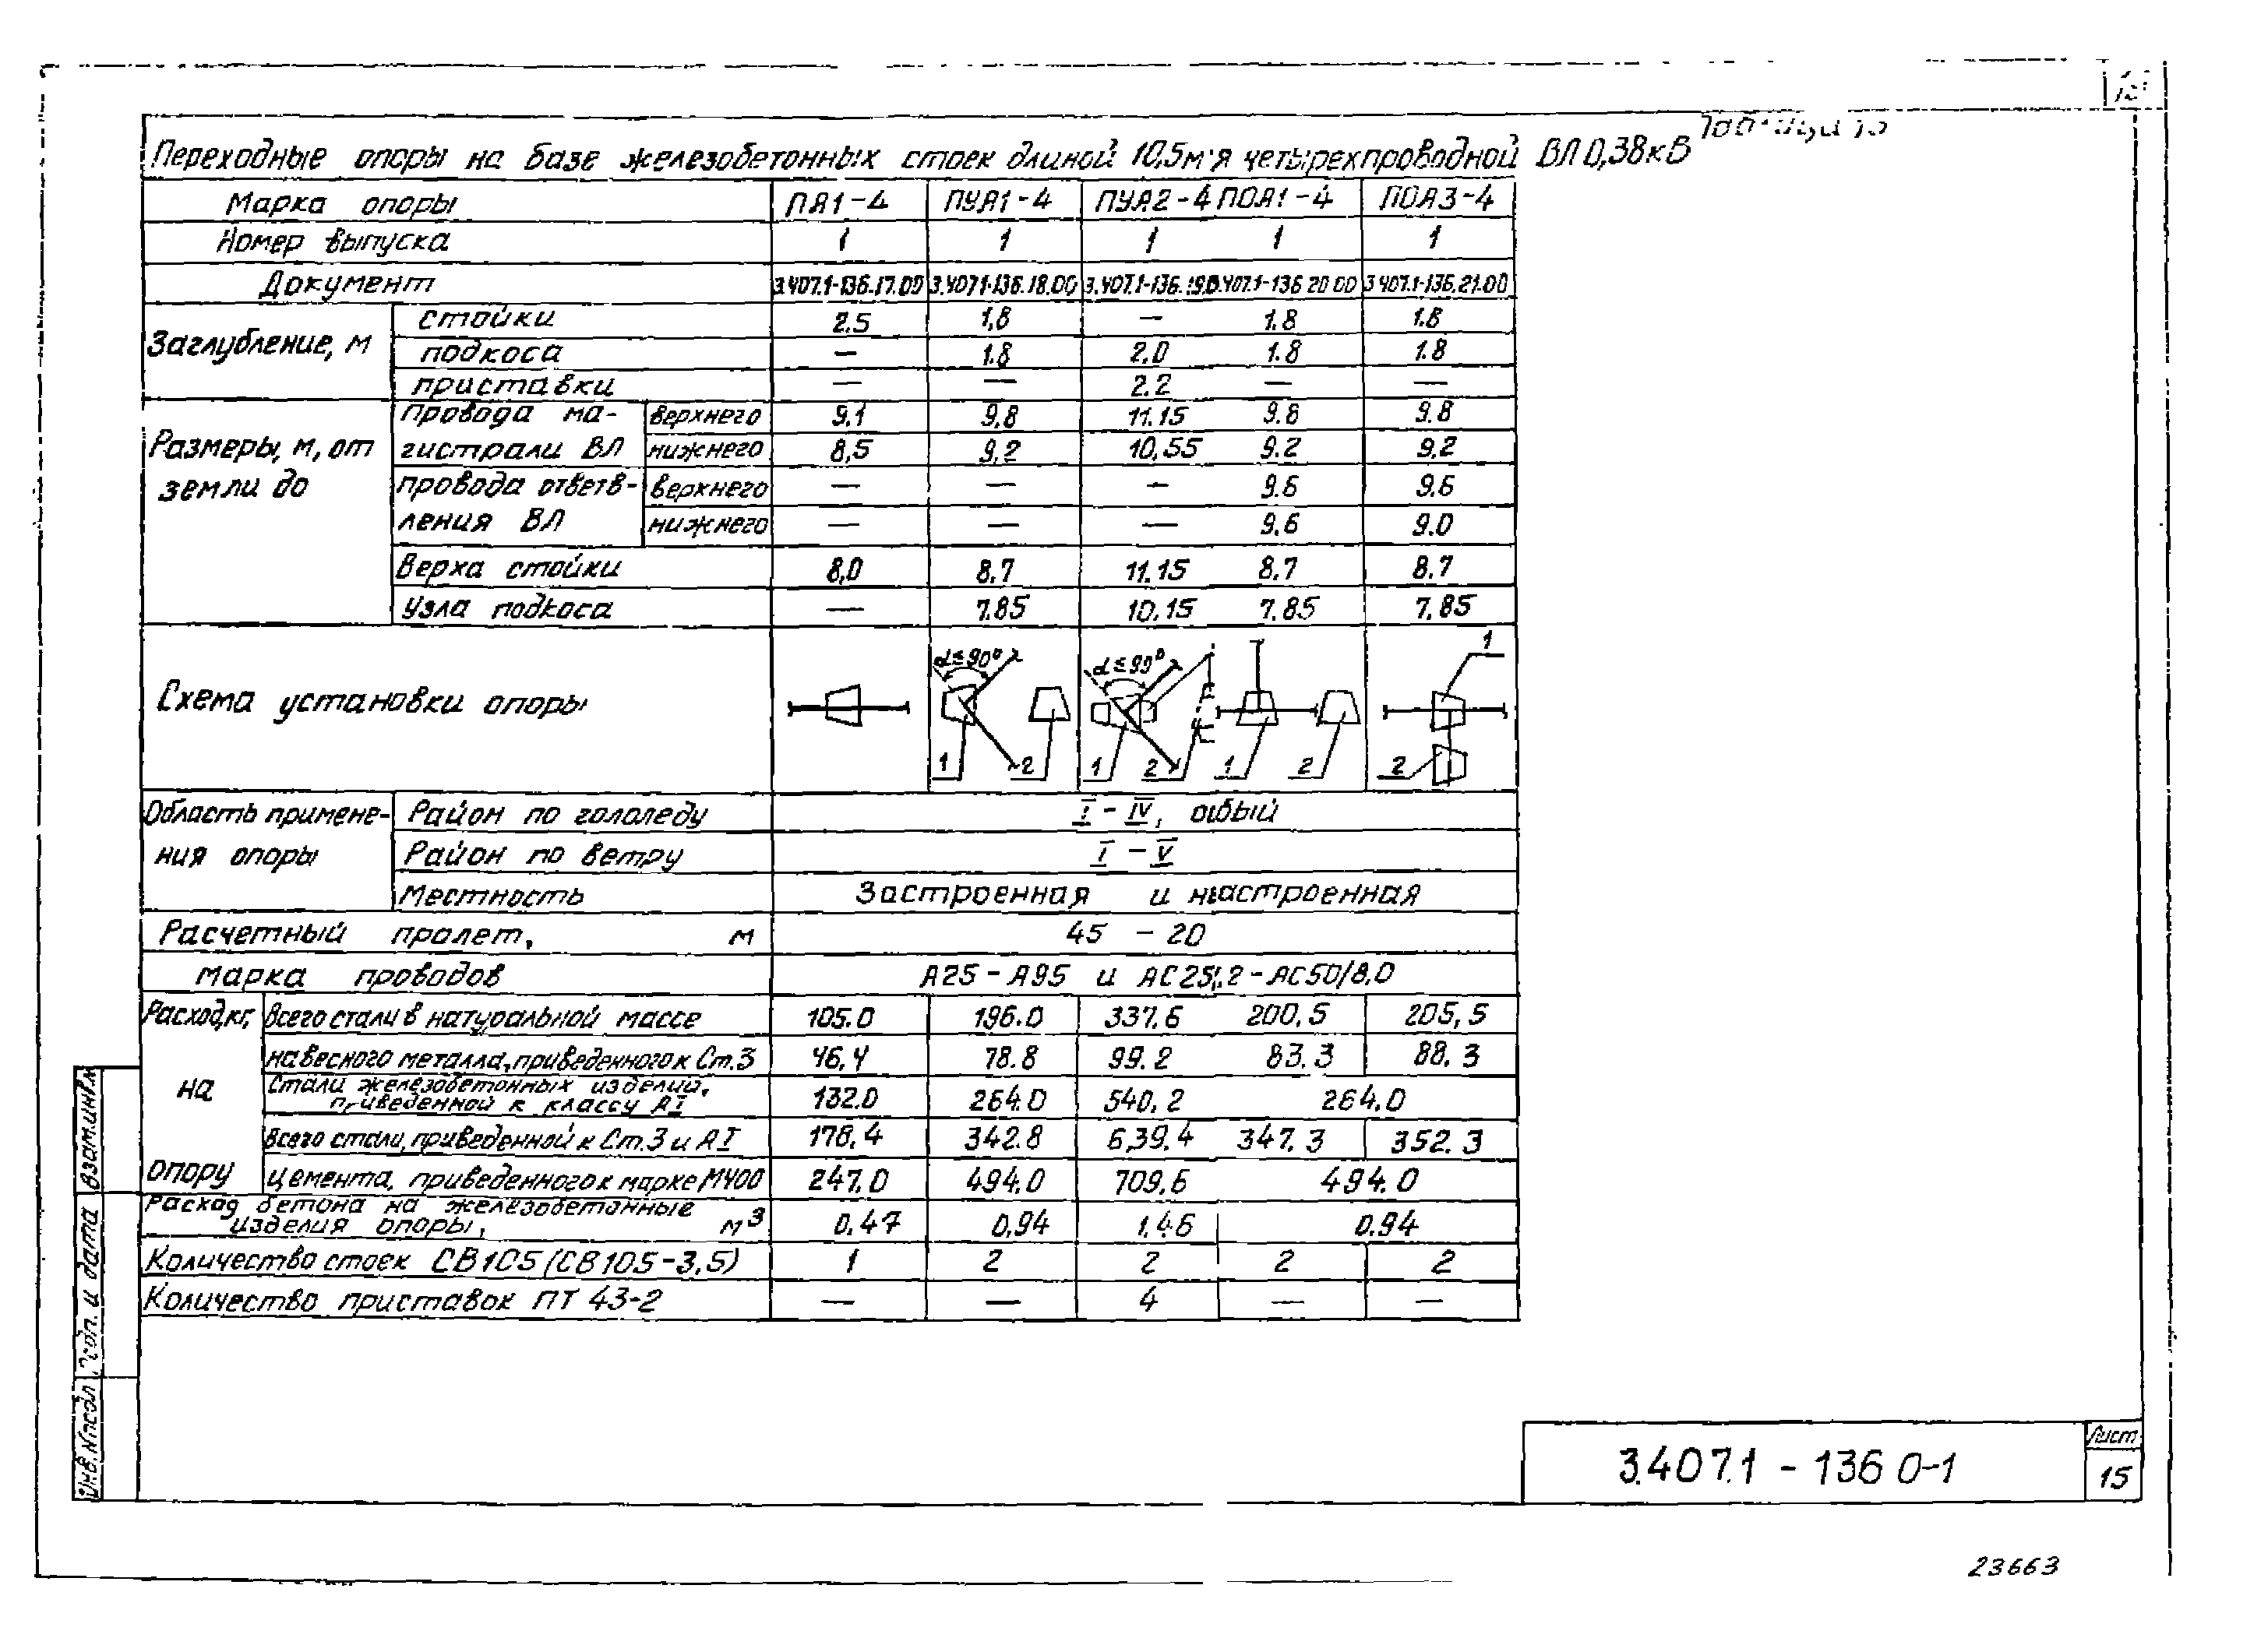 Переходные опоры на базе железобетонных стоек длиной 10,5м четырехпроводной ВЛ 0,38кВ
Марка опоры ПА1-4 ПУА1-4 ПУА2-4 ПОА1-4 ПОА3-4
Номер выпуска 1 1 1 1 1
Документ 3.407.1-136.17.00 3.407.1-136.18.00 3.407.1-136.19.0 3.407.1-136 20 00 3 407.1-136.21.00
Заглубление, м
стойки 2.5 1,8 — 1.8 1.8
подкоса — 1.8 2.0 1.8 1.8
приставки — — 2.2 — —
Размеры, м, от земли до
провода магистрали ВЛ
верхнего 9.1 9,8 11.15 9.8 9.8
нижнего 8,5 9,2 10,55 9.2 9.2
провода ответвления ВЛ
верхнего — — — 9.6 9.6
нижнего — — — 9.6 9.0
Верха стойки 8,0 8.7 11.15 8.7 8.7
Узла подкоса — 7.85 10.15 7.85 7.85
Схема установки опоры
α≤90° α≤90° 1
1 2 1 2 1 2 2
Область применения опоры
Район по гололеду I - IV, особый
Район по ветру I - V
Местность Застроенная и незастроенная
Расчетный пролет, м 45 - 20
Марка проводов А25-А95 и АС25/4.2-АС50/8.0
Расход, кг, на опору
Всего стали в натуральной массе 105.0 196.0 337.6 200,5 205,5
навесного металла, приведенного к Ст.3 46,4 78.8 99.2 83.3 88.3
Стали железобетонных изделий,
приведенной к классу АI 132.0 264.0 540.2 264.0
Всего стали, приведенной к Ст.3 и АI 178.4 342.8 639.4 347.3 352.3
Цемента, приведенного к марке М400 247.0 494.0 709.6 494.0
Расход бетона на железобетонные
изделия опоры, м³ 0,47 0,94 1.46 0.94
Количество стоек СВ105 (СВ105-3,5) 1 2 2 2 2
Количество приставок ПТ 43-2 — — 4 — —
Взам.инв.№
Подп. и дата
Инв.№подл.
3.407.1 - 136 0-1
Лист
15
23663